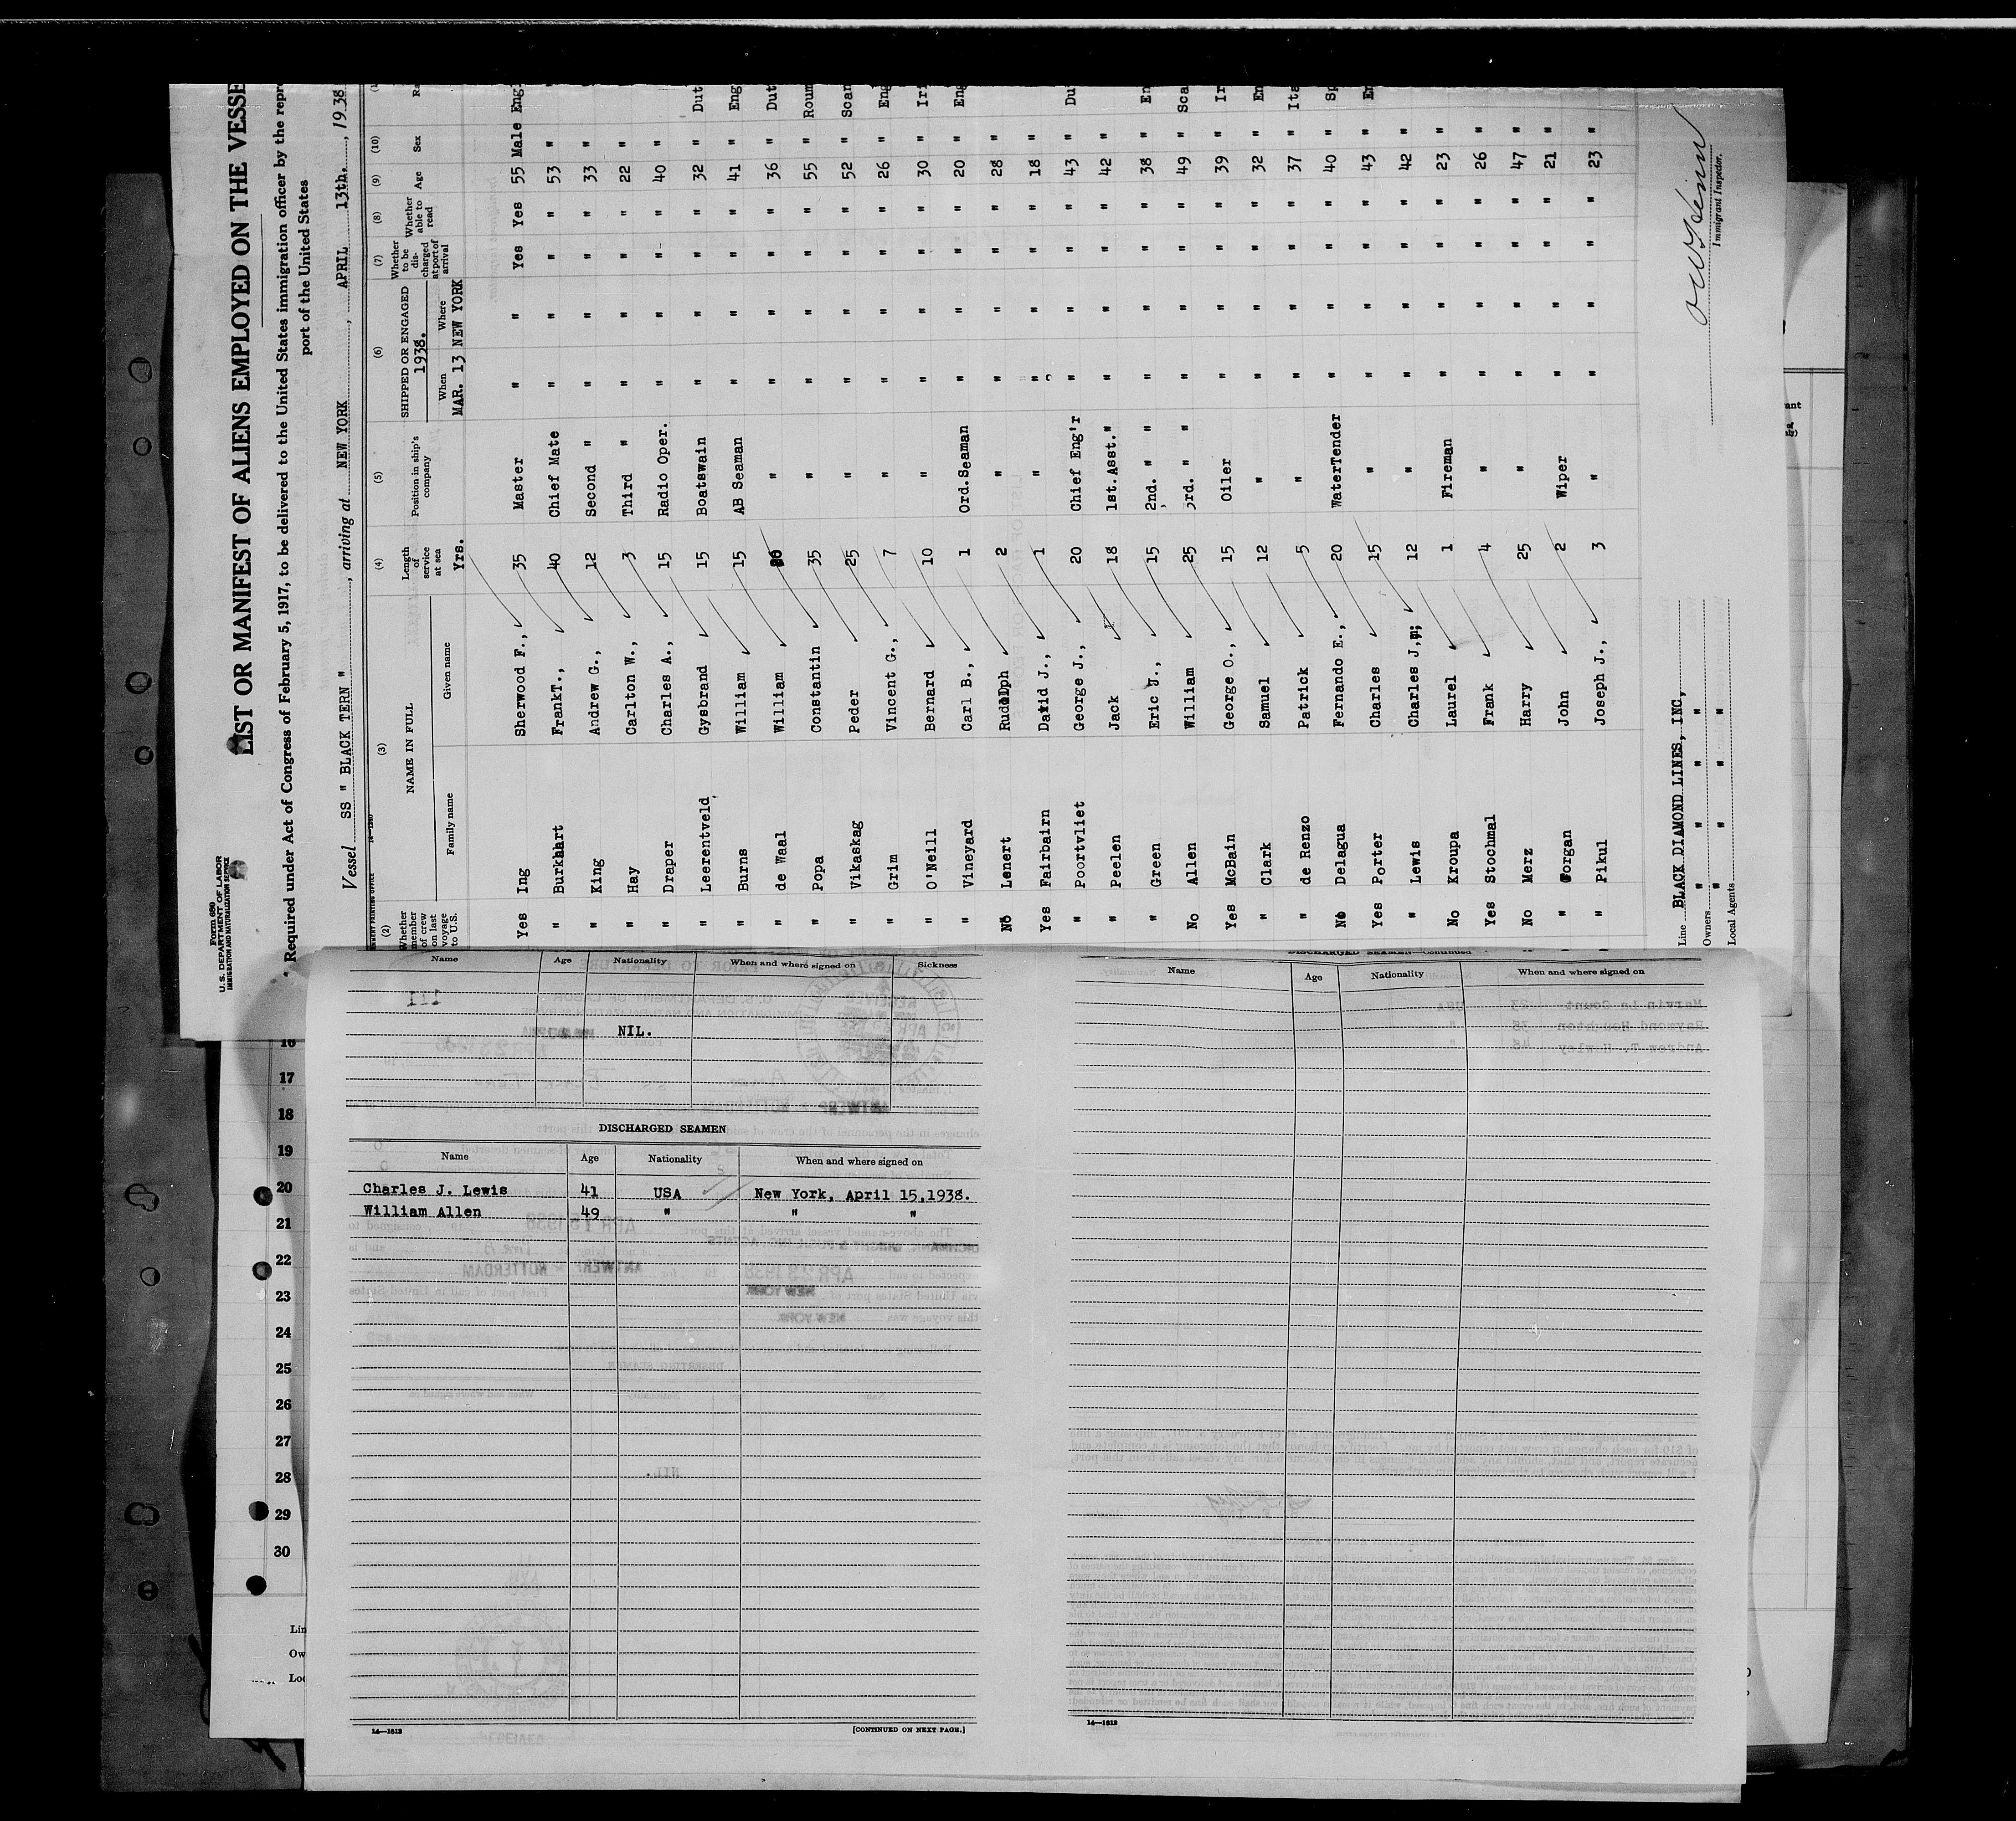 Form 680
U.S. DEPARTMENT OF LABOR
IMMIGRATION AND NATURALIZATION SERVICE
LIST OR MANIFEST OF ALIENS EMPLOYED ON THE VESSE
Required under Act of Congress of February 5, 1917, to be delivered to the United States immigration officer by the repr
port of the United States
Vessel SS " BLACK TERN ", arriving at NEW YORK, APRIL 13th., 1938
(2) (3) (4) (5) (6) (7) (8) (9) (10)
Whether member of crew on last voyage to U.S. NAME IN FULL Family name Given name Length of service at sea Yrs. Position in ship's company SHIPPED OR ENGAGED 1938. When Where Whether to be discharged at port of arrival Whether able to read Age Sex Ra
MAR. 13 NEW YORK
Yes Ing Sherwood F., 35 Master " " Yes Yes 55 Male Eng
" Burkhart FrankT., 40 Chief Mate " " " " 53 " "
" King Andrew G., 12 Second " " " " " 33 " "
" Hay Carlton W., 3 Third " " " " " 22 " "
" Draper Charles A., 15 Radio Oper. " " " " 40 " "
" Leerentveld Gysbrand 15 Boatswain " " " " 32 " Dut
" Burns William 15 AB Seaman " " " " 41 " Eng
" de Waal William " " " " " 36 " Dut
" Popa Constantin 35 " " " " " 55 " Roum
" Vikaskag Peder 25 " " " " " 52 " Scan
" Grim Vincent G., 7 " " " " " 26 " Eng
" O'Neill Bernard 10 " " " " " 30 " Iri
" Vineyard Carl B., 1 Ord.Seaman " " " " 20 " Eng
No Lenert Rudolph 2 " " " " " 28 "
Yes Fairbairn David J., 1 " " " " " 18 "
" Poortvliet George J., 20 Chief Eng'r " " " " 43 " Du
" Peelen Jack 18 1st.Asst." " " " " 42 "
" Green Eric J., 15 2nd. " " " " " " 38 " En
No Allen William 25 3rd. " " " " " " 49 " Sca
Yes McBain George O., 15 Oiler " " " " 39 " Ir
" Clark Samuel 12 " " " " " 32 " En
" de Renzo Patrick 5 " " " " " 37 " Ita
No Delagua Fernando E., 20 WaterTender " " " " 40 " Sp
Yes Porter Charles 15 " " " " " 43 " En
" Lewis Charles J., 12 " " " " " 42 "
No Kroupa Laurel 1 Fireman " " " " 23 "
Yes Stochmal Frank 4 " " " " " 26 "
No Merz Harry 25 " " " " " 47 "
" John 2 Wiper " " " " 21 "
" Pikul Joseph J., 3 " " " " " 23 "
Line BLACK DIAMOND LINES, INC,
Owners " " " "
Local Agents " " " "
Immigrant Inspector.
16
17
18
19
20
21
22
23
24
25
26
27
28
29
30
Lin
Ow
Loc
Name Age Nationality When and where signed on Sickness
NIL.
DISCHARGED SEAMEN
Name Age Nationality When and where signed on
Charles J. Lewis 41 USA New York, April 15,1938.
William Allen 49 " " "
14—1613 [CONTINUED ON NEXT PAGE.]
DISCHARGED SEAMEN—Continued
Name Age Nationality When and where signed on
14—1613